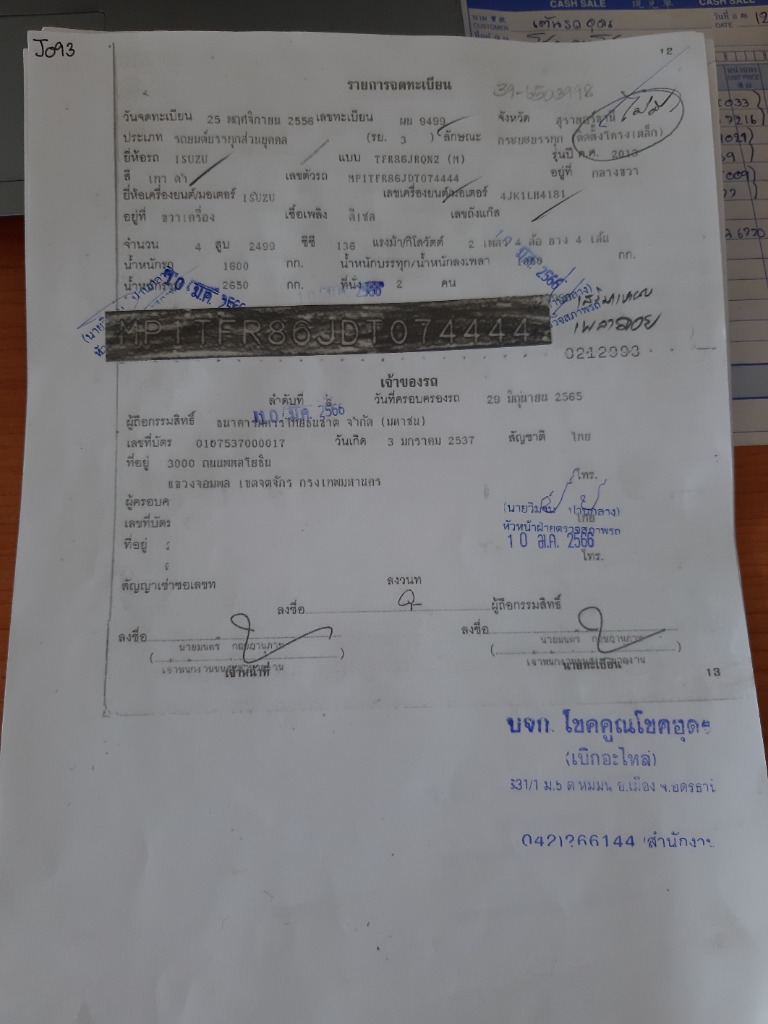 J093
CASH SALE
CASH SALE
CUSTOMER
วันที่
DATE
12
39-6503998
รายการจดทะเบียน
วันจดทะเบียน 25 พฤศจิกายน 2556 เลขทะเบียน ผน 9499 จังหวัด สุราษฎร์ธานี
ไม่มา
ประเภท รถยนต์บรรทุกส่วนบุคคล (รย. 3 ) ลักษณะ กระบะบรรทุก ติดตั้งโครง(เหล็ก)
ยี่ห้อรถ ISUZU แบบ TFR86JRQN2 (M) รุ่นปี ค.ศ. 2013
สี เทา ดำ เลขตัวรถ MP1TFR86JDT074444 อยู่ที่ กลางขวา
ยี่ห้อเครื่องยนต์/มอเตอร์ ISUZU เลขเครื่องยนต์/มอเตอร์ 4JK1LB4181
อยู่ที่ ขวาเครื่อง เชื้อเพลิง ดีเซล เลขถังแก๊ส
จำนวน 4 สูบ 2499 ซีซี 136 แรงม้า/กิโลวัตต์ 2 เพลา 4 ล้อ ยาง 4 เส้น
น้ำหนักรถ 1600 กก. น้ำหนักบรรทุก/น้ำหนักลงเพลา กก.
2650 กก. ที่นั่ง 2 คน
10 มี.ค. 2566
MP1TFR86JDT074444
เพลาลอย
0212993
เจ้าของรถ
ลำดับที่ วันที่ครอบครองรถ 29 มิถุนายน 2565
10 มี.ค. 2566
ผู้ถือกรรมสิทธิ์ ธนาคารทหารไทยธนชาต จำกัด (มหาชน)
เลขที่บัตร 0107537000017 วันเกิด 3 มกราคม 2537 สัญชาติ ไทย
ที่อยู่ 3000 ถนนพหลโยธิน
แขวงจอมพล เขตจตุจักร กรุงเทพมหานคร
โทร.
ผู้ครอบค
เลขที่บัตร
ไทย
หัวหน้าฝ่ายตรวจสภาพรถ
10 มี.ค. 2566
ที่อยู่
โทร.
สัญญาเช่าซื้อเลขที่ ลงวันที่
ลงชื่อ ผู้ถือกรรมสิทธิ์
ลงชื่อ ลงชื่อ
นายมนตรี นายมนตรี
เจ้าหน้าที่ นายทะเบียน
13
บจก. โชคคูณโชคอุดร
(เบิกอะไหล่)
จ.อุดรธานี
042)266144 (สำนักงาน